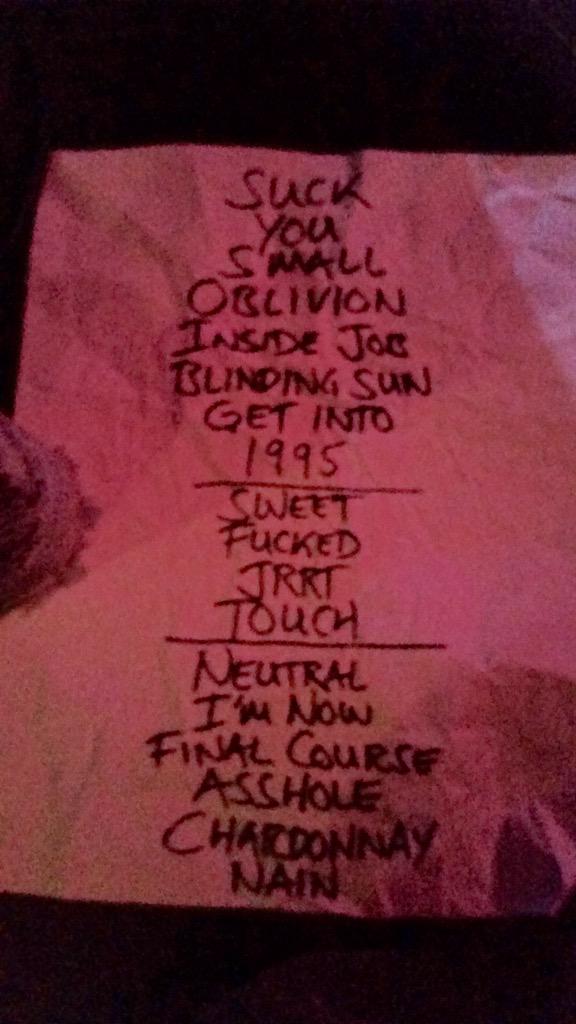 SUCK
YOU
SMALL
OBLIVION
INSIDE JOB
BLINDING SUN
GET INTO
1995
SWEET
FUCKED
JRRT
TOUCH
NEUTRAL
I'M NOW
FINAL COURSE
ASSHOLE
CHARDONNAY
NAIN